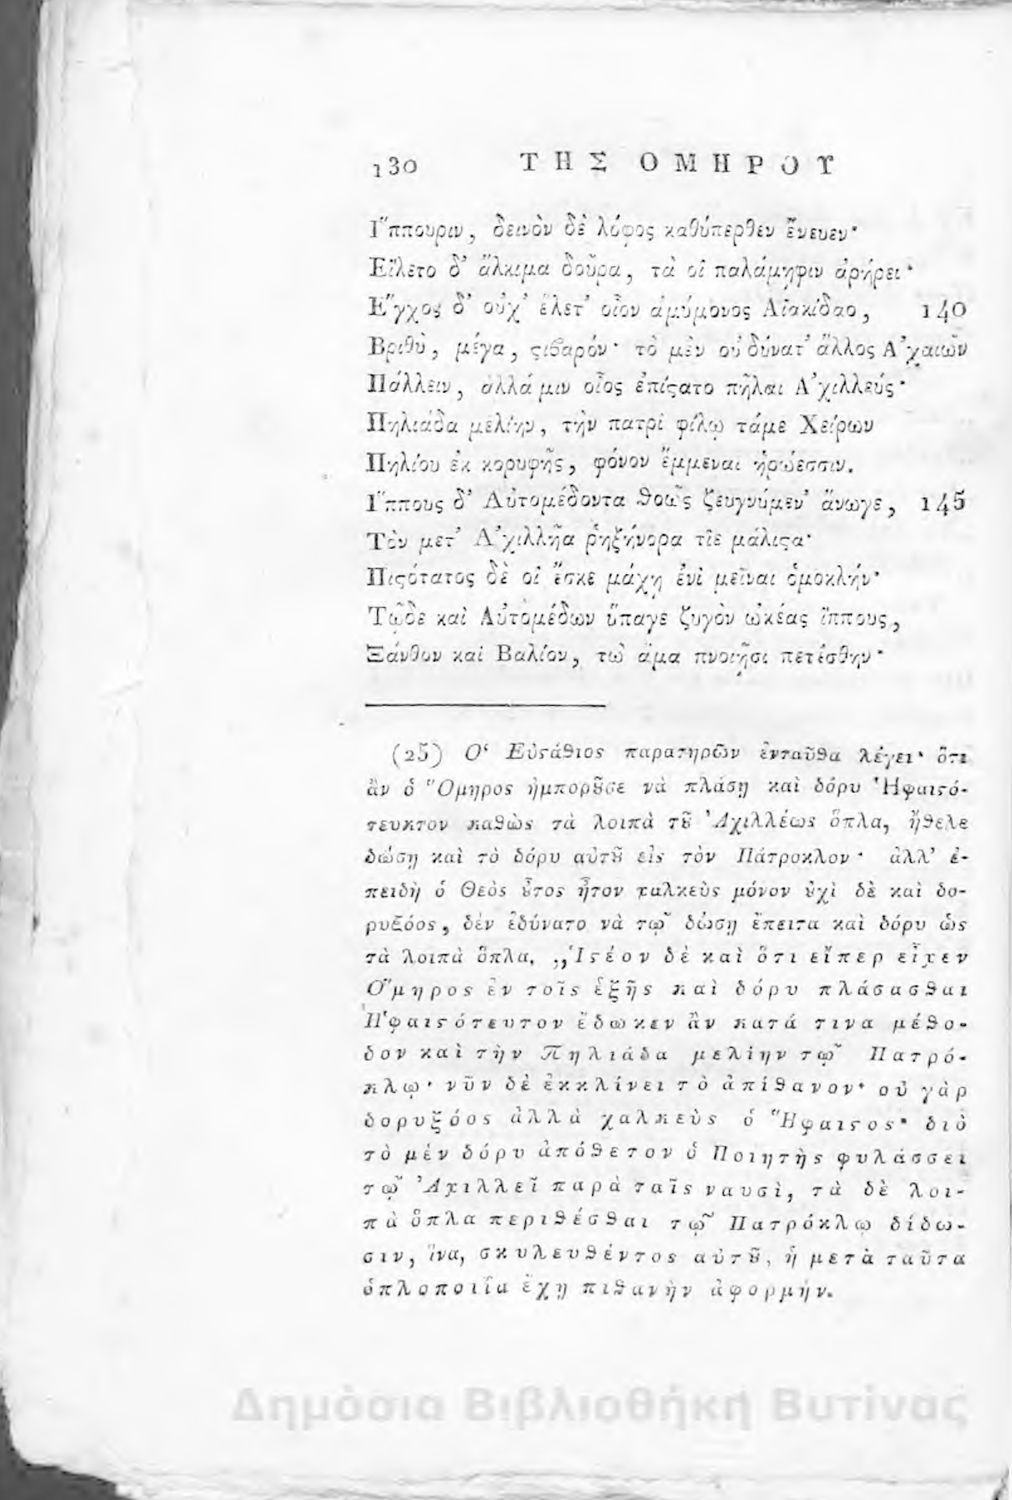 130 ΤΗΣ ΟΜΗΡΟΥ
Ι῞ππουριν, δεινὸν δὲ λόφος καθύπερθεν ἔνευεν·
Εἵλετο δ' ἄλκιμα δοῦρα, τὰ οἱ παλάμηφιν ἀρήρει·
Ε῎γχος δ' οὐχ' ἕλετ' οἶον ἀμύμονος Αἰακίδαο, 140
Βριθὺ, μέγα, ϛιβαρόν· τὸ μὲν οὐ δύνατ' ἄλλος Α᾿χαιῶν
Πάλλειν, ἀλλά μιν οἶος ἐπίϛατο πῆλαι Α᾿χιλλεύς·
Πηλιάδα μελίην, τὴν πατρὶ φίλῳ τάμε Χείρων
Πηλίου ἐκ κορυφῆς, φόνον ἔμμεναι ἡρώεσσιν.
Ι῞ππους δ' Αὐτομέδοντα ϑοῶς ζευγνύμεν' ἄνωγε, 145
Τὸν μετ' Α᾿χιλλῆα ῥηξήνορα τῖε μάλιϛα·
Πιϛότατος δὲ οἱ ἔσκε μάχῃ ἐνὶ μεῖναι ὁμοκλήν·
Τῷδε καὶ Αὐτομέδων ὕπαγε ζυγὸν ὠκέας ἵππους,
Ξάνθον καὶ Βαλίον, τὼ ἅμα πνοιῇσι πετέσθην·
(25) Ο῾ Εὐϛάϑιος παρατηρῶν ἐνταῦϑα λέγει· ὅτι
ἂν ὁ Ὅμηρος ἠμποροῦσε νὰ πλάσῃ καὶ δόρυ Ἡφαιϛό-
τευκτον καϑὼς τὰ λοιπὰ τοῦ Ἀχιλλέως ὅπλα, ἤϑελε
δώσῃ καὶ τὸ δόρυ αὐτοῦ εἰς τὸν Πάτροκλον· ἀλλ' ἐ-
πειδὴ ὁ Θεὸς οὗτος ἦτον χαλκεὺς μόνον οὐχὶ δὲ καὶ δο-
ρυξόος, δὲν ἐδύνατο νὰ τῷ δώσῃ ἔπειτα καὶ δόρυ ὡς
τὰ λοιπὰ ὅπλα. ,,Ἰϛέον δὲ καὶ ὅτι εἴπερ εἶχεν
Ο῞μηρος ἐν τοῖς ἑξῆς καὶ δόρυ πλάσασϑαι
Η῾φαιϛότευτον ἔδωκεν ἂν κατά τινα μέϑο-
δον καὶ τὴν Πηλιάδα μελίην τῷ Πατρό-
κλῳ· νῦν δὲ ἐκκλίνει τὸ ἀπίϑανον· οὐ γὰρ
δορυξόος ἀλλὰ χαλκεὺς ὁ Ἥφαιϛος· διὸ
τὸ μὲν δόρυ ἀπόϑετον ὁ Ποιητὴς φυλάσσει
τῷ Ἀχιλλεῖ παρὰ ταῖς ναυσὶ, τὰ δὲ λοι-
πὰ ὅπλα περιϑέσϑαι τῷ Πατρόκλῳ δίδω-
σιν, ἵνα, σκυλευϑέντος αὐτοῦ, ἡ μετὰ ταῦτα
ὁπλοποιΐα ἔχῃ πιϑανὴν ἀφορμήν.
Δημόσια Βιβλιοθήκη Βυτίνας